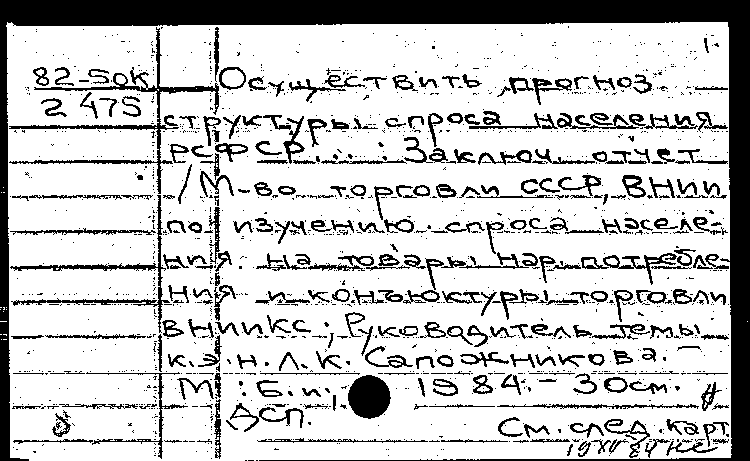 1.
82-50К
2 475
Осуществить прогноз
структуры спроса населения
РСФСР...: Заключ. отчет
/М-во торговли СССР, ВНИИ
по изучению спроса населе-
ния на товары нар. потребле-
ния и конъюктуры торговли
ВНИИКС; Руководитель темы
к.э.н. Л.К. Сапожникова. –
М.: Б.и., 1984. – 30см.
ДСП.
См. след. карт